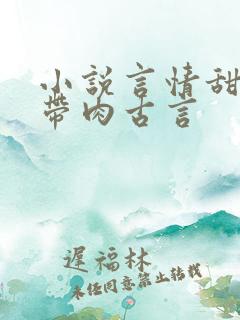 小說言情甜
帶肉古言
遲福林
未經同意禁止轉載